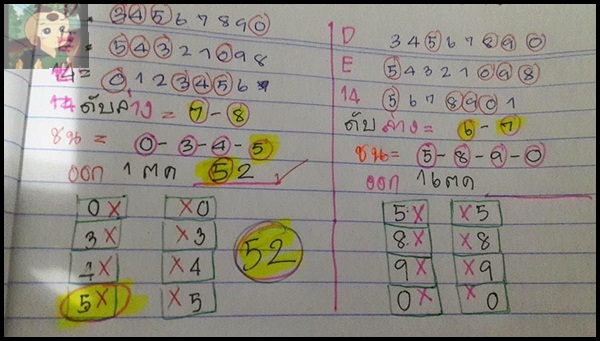 D = 3 4 5 6 7 8 9 0
E = 5 4 3 2 1 0 9 8
14 = 0 1 2 3 4 5 6 7
14 ดับล่าง = 7 - 8
ชน = 0 - 3 - 4 - 5
ออก 1 ตด 52
0X X0
3X X3
4X X4
5X X5
52
D 3 4 5 6 7 8 9 0
E 5 4 3 2 1 0 9 8
14 5 6 7 8 9 0 1
ดับ ล่าง = 6 - 7
ชน = 5 - 8 - 9 - 0
ออก 16 ตด
5X X5
8X X8
9X X9
0X X0